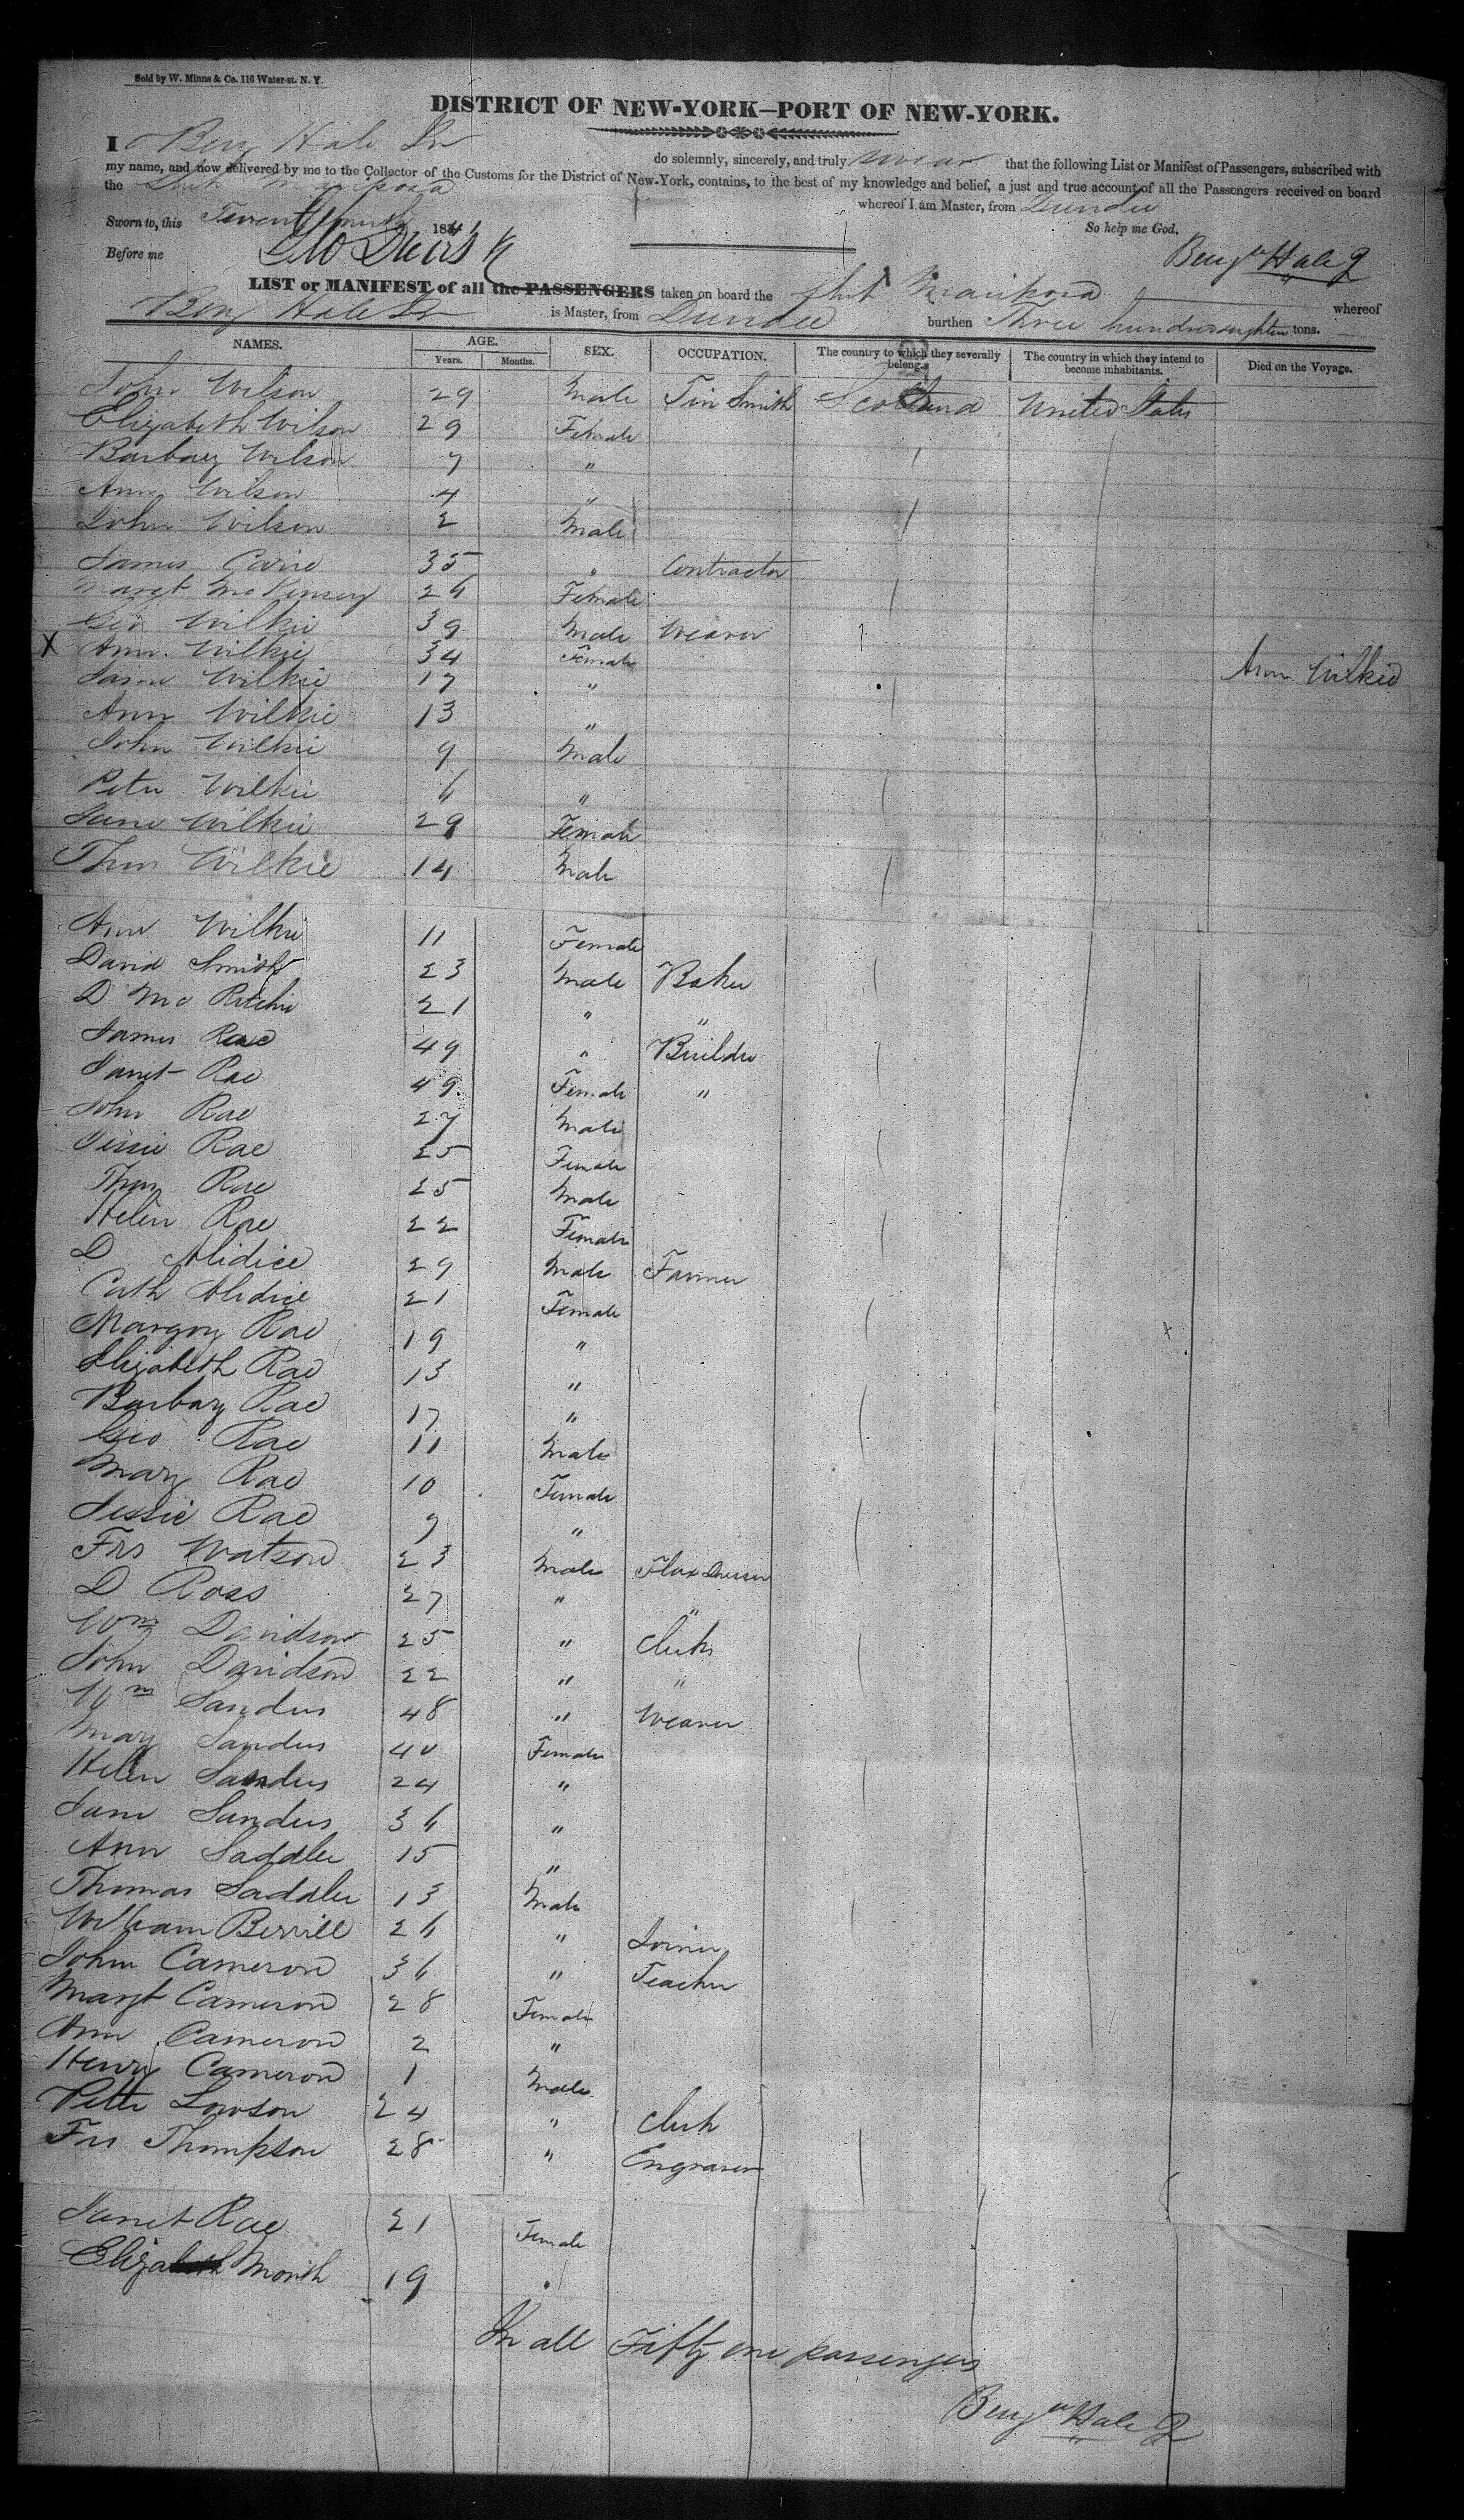 Sold by W. Minns & Co. 116 Water-st. N. Y.
DISTRICT OF NEW-YORK—PORT OF NEW-YORK.
I Benj Hale Jr do solemnly, sincerely, and truly swear that the following List or Manifest of Passengers, subscribed with
my name, and now delivered by me to the Collector of the Customs for the District of New-York, contains, to the best of my knowledge and belief, a just and true account of all the Passengers received on board
the Ship Mariposa whereof I am Master, from Dundee
Sworn to, this 184 So help me God.
Before me Benjn Hale J
LIST or MANIFEST of all the PASSENGERS taken on board the Ship Mariposa whereof
Benj Hale Jr is Master, from Dundee burthen Three hundred tons.
NAMES. AGE. SEX. OCCUPATION. The country to which they severally belong. The country in which they intend to become inhabitants. Died on the Voyage.
Years. Months.
John Wilson 29 Male Tin Smith Scotland United States
Elizabeth Wilson 29 Female
Barbary Wilson 7 "
Ann Wilson 4 "
John Wilson 2 Male
James Carie 35 " Contractor
Margt McKensey 26 Female
Geo Wilkie 39 Male Weaver
X Ann Wilkie 34 Female Ann Wilkie
Wilkie 17 "
Ann Wilkie 13 "
John Wilkie 9 Male
Peter Wilkie 6 "
Jane Wilkie 29 Female
Thos Wilkie 14 Male
Ann Wilkie 11 Female
David Smith 23 Male Baker
D Mc Ritchie 21 " "
James Rae 49 " Builder
Janet Rae 49 Female "
John Rae 27 Male
Jessie Rae 25 Female
Thos Rae 25 Male
Helen Rae 22 Female
D 29 Male Farmer
Cath 21 Female
Margory Rae 19 "
Elizabeth Rae 13 "
Barbary Rae 17 "
Geo Rae 11 Male
Mary Rae 10 Female
Jessie Rae 9 "
Frs Watson 23 Male Flax Dresser
D Ross 27 " "
Wm Davidson 25 " Clerk
John Davidson 22 " "
Wm Sandus 48 " Weaver
Mary Sandus 40 Female
Helen Sandus 24 "
Jane Sandus 36 "
Ann Saddler 15 "
Thomas Saddler 13 Male
William Berrill 26 " Joiner
John Cameron 36 " Teacher
Margt Cameron 28 Female
Ann Cameron 2 "
Henry Cameron 1 Male
Peter Lowson 24 " Clerk
Frs Thompson 28 " Engraver
Janet Rae 21 Female
Elizabeth 19 "
In all Fifty one passengers
Benjn Hale J